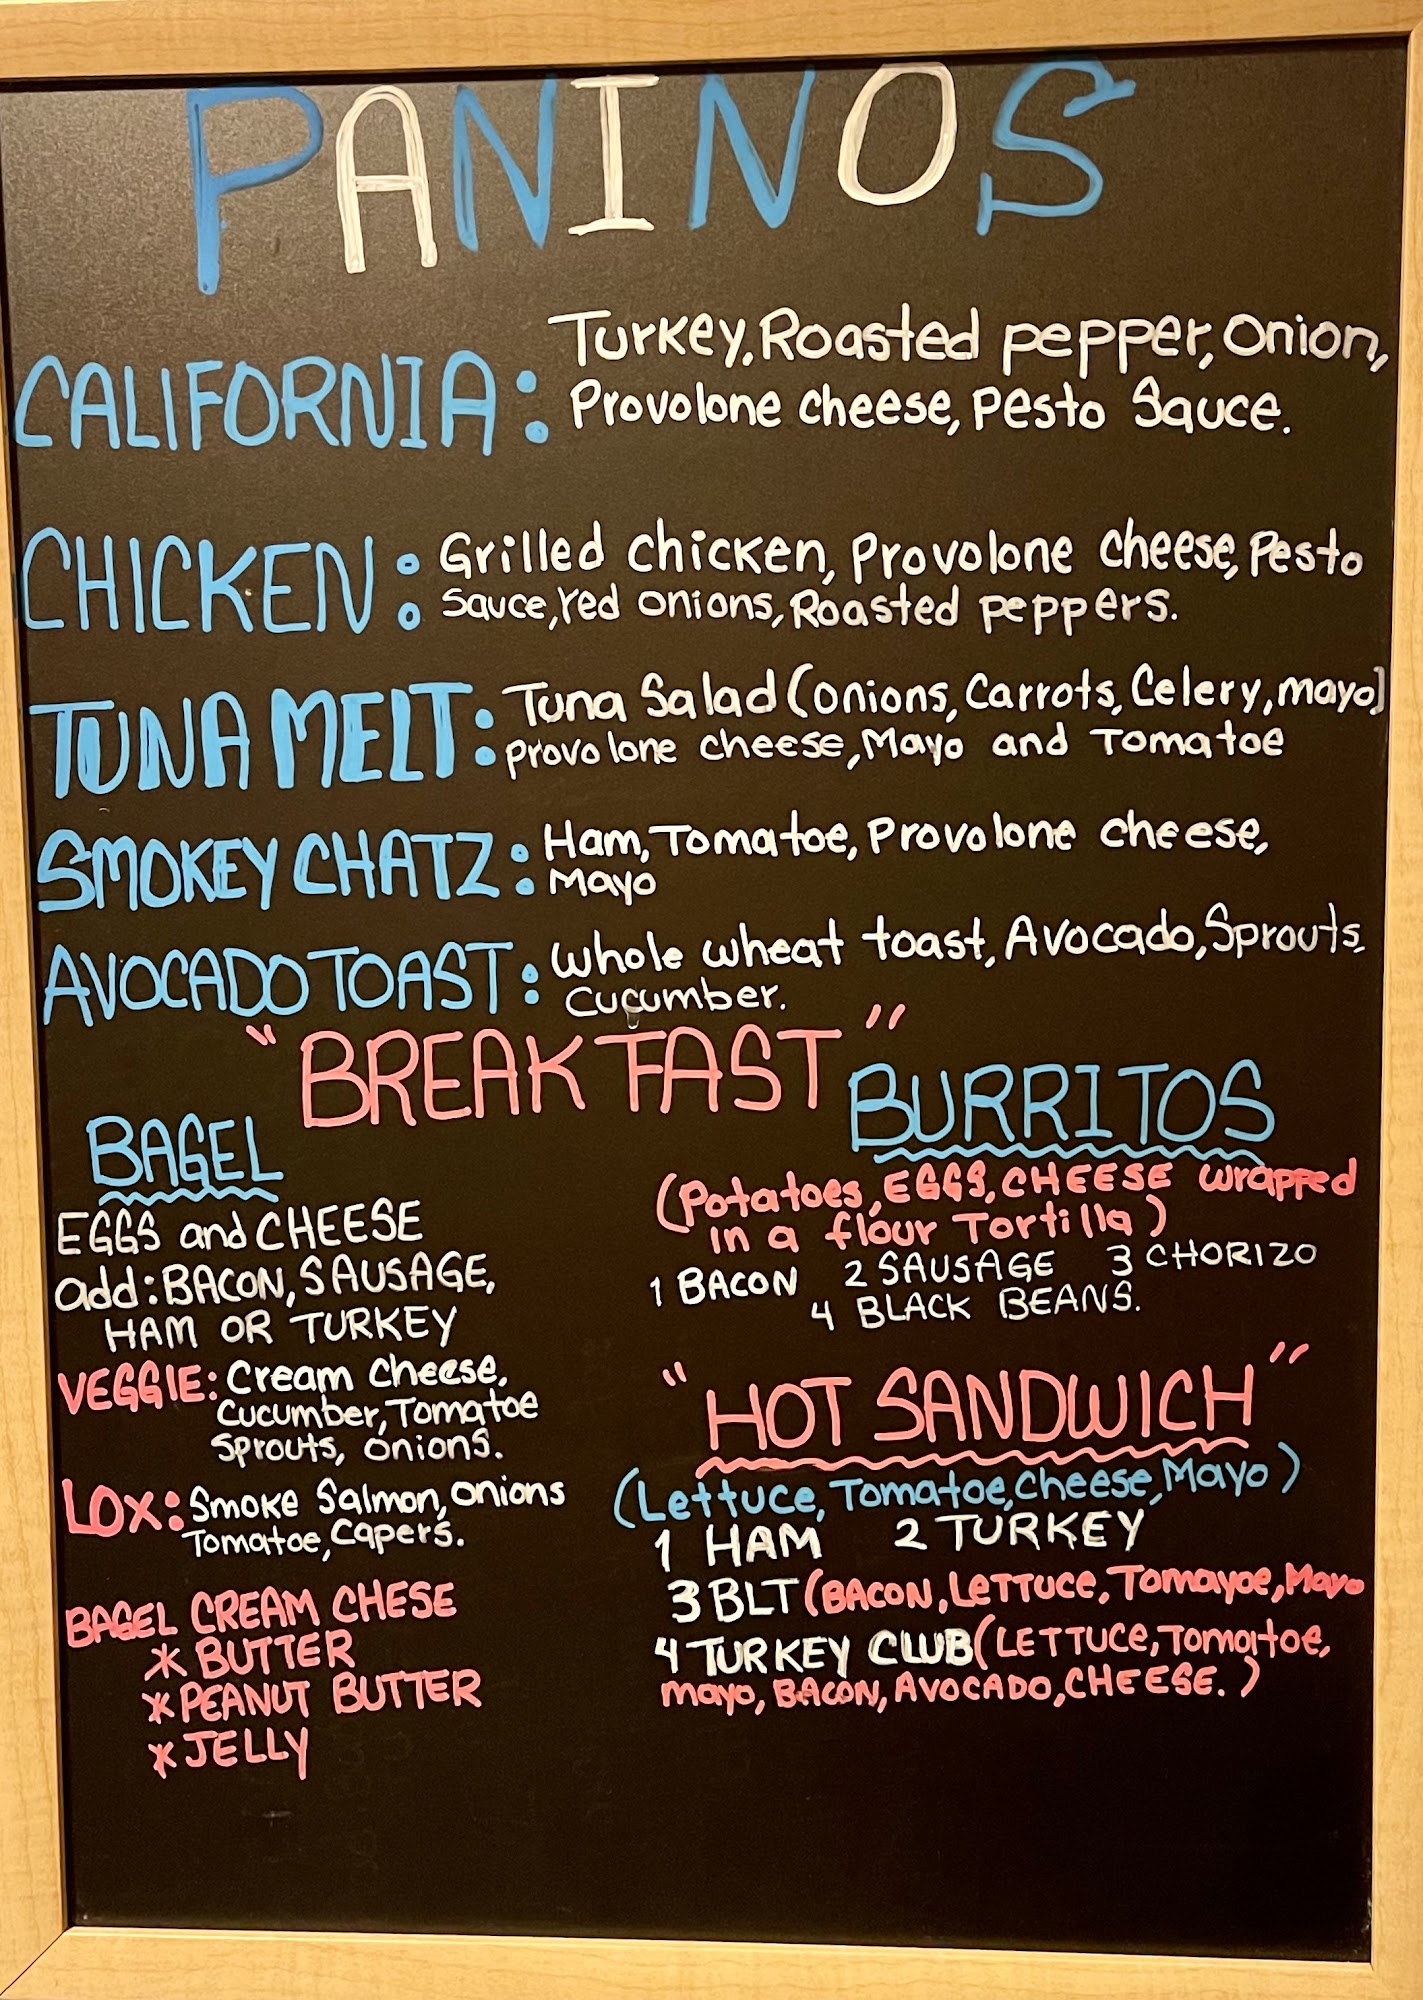 PANINOS
CALIFORNIA: Turkey, Roasted pepper, Onion,
Provolone cheese, Pesto Sauce.
CHICKEN: Grilled chicken, Provolone cheese, Pesto
Sauce, red onions, Roasted peppers.
TUNA MELT: Tuna Salad (onions, Carrots, Celery, mayo)
provolone cheese, Mayo and Tomatoe
SMOKEY CHATZ: Ham, Tomatoe, Provolone cheese,
Mayo
AVOCADO TOAST: Whole wheat toast, Avocado, Sprouts,
Cucumber.
"BREAKFAST"
BAGEL
EGGS and CHEESE
add: BACON, SAUSAGE,
HAM OR TURKEY
VEGGIE: Cream Cheese,
Cucumber, Tomatoe
Sprouts, onions.
LOX: Smoke Salmon, onions
Tomatoe, Capers.
BAGEL CREAM CHESE
* BUTTER
* PEANUT BUTTER
* JELLY
BURRITOS
(Potatoes, EGGS, CHEESE wrapped
in a flour Tortilla)
1 BACON 2 SAUSAGE 3 CHORIZO
4 BLACK BEANS.
"HOT SANDWICH"
(Lettuce, Tomatoe, Cheese, Mayo)
1 HAM 2 TURKEY
3 BLT (BACON, LETTUCE, Tomayoe, Mayo
4 TURKEY CLUB (LETTUCE, Tomatoe,
mayo, BACON, AVOCADO, CHEESE.)